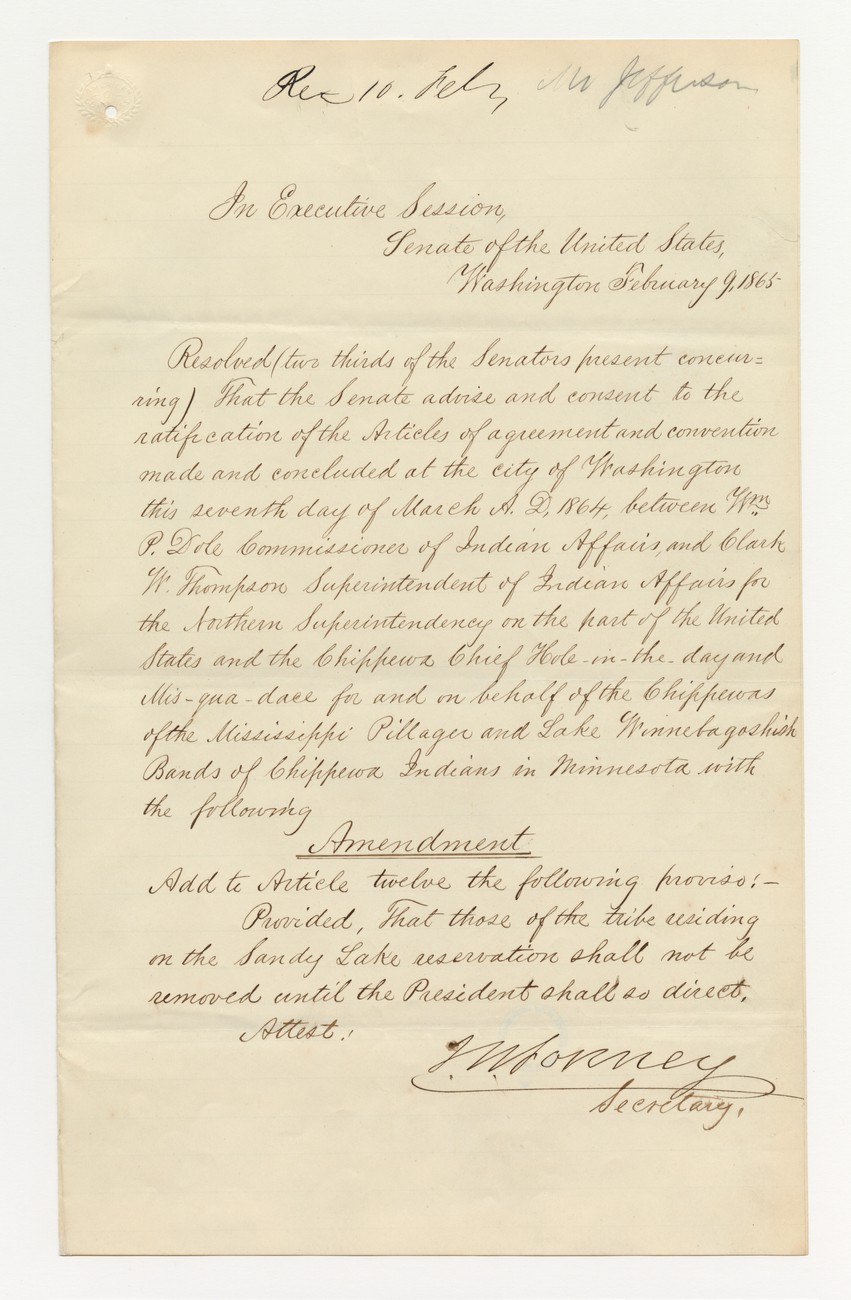 Rec 10. Feby Mr Jefferson
In Executive Session,
Senate of the United States,
Washington February 9, 1865
Resolved (two thirds of the Senators present concur=
ring) That the Senate advise and consent to the
ratification of the Articles of agreement and convention
made and concluded at the city of Washington
this seventh day of March A. D, 1864, between Wm
P. Dole Commissioner of Indian Affairs, and Clark
W. Thompson Superintendent of Indian Affairs for
the Northern Superintendency on the part of the United
States and the Chippewa Chief Hole-in-the-day and
Mis-qua-dace for and on behalf of the Chippewas
of the Mississippi Pillager and Lake Winnebagoshish
Bands of Chippewa Indians in Minnesota with
the following
Amendment
Add to Article twelve the following proviso:-
Provided, That those of the tribe residing
on the Sandy Lake reservation shall not be
removed until the President shall so direct.
Attest:
J. W. Forney
Secretary.